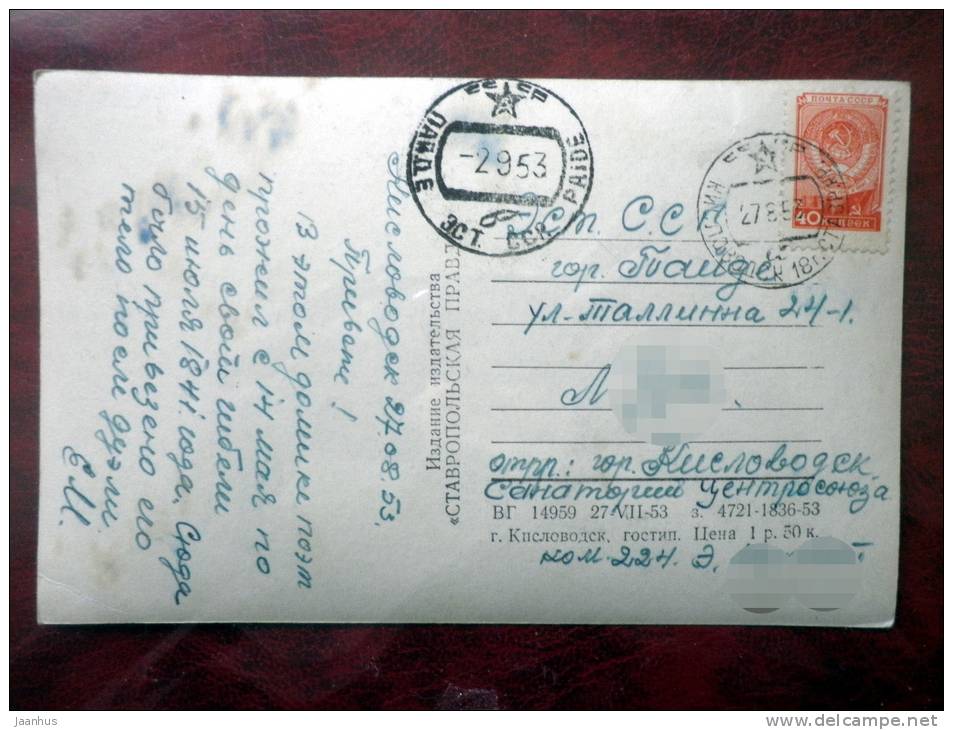 Кисловодск 27.08.53.
Привет!
В этом домике поэт
прожил с 14 мая по
день своей гибели
15 июля 1841 года. Сюда
было привезено его
тело после дуэли.
Е.М.
Издание издательства
«СТАВРОПОЛЬСКАЯ ПРАВДА
ПАЙДЕ
PAIDE
-2 9 53
б
ЭСТ. ССР
ПОЧТА СССР
40 КОПЕЕК
27 8 53
Эст. С.С.Р
гор. Пайде
ул. Таллинна 24-1.
Л
отпр.: гор. Кисловодск
Санаторий Центросоюза
ВГ 14959 27-VII-53 з. 4721-1836-53
г. Кисловодск, гостип. Цена 1 р. 50 к.
ком. 224. Э.
Jaanhus
www.delcampe.net